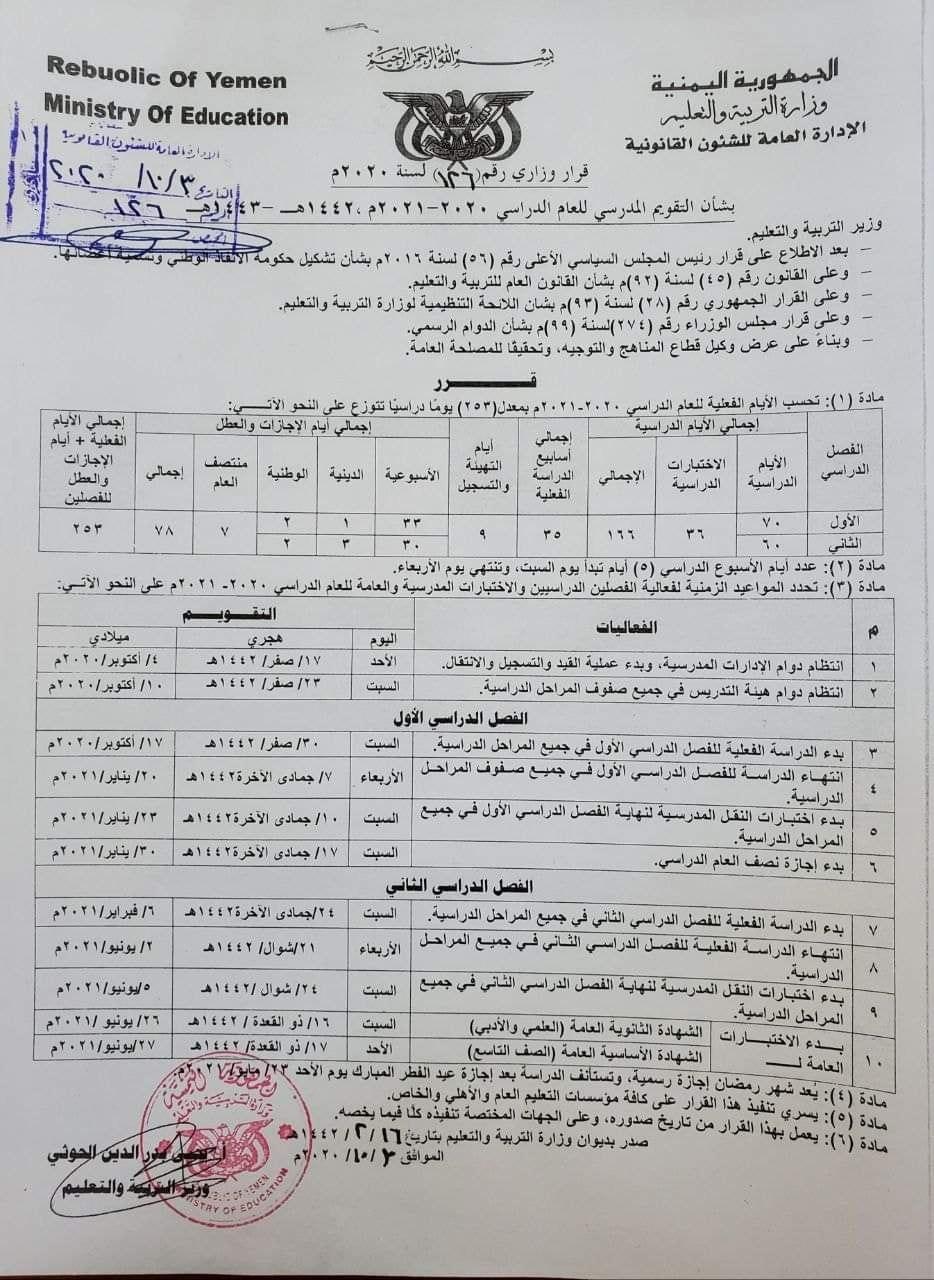 بسم الله الرحمن الرحيم
Rebuolic Of Yemen
Ministry Of Education
الجمهورية اليمنية
وزارة التربية والتعليم
الإدارة العامة للشئون القانونية
الإدارة العامة للشئون القانونية
التاريخ ٢٠٢٠/١٠/٣
١٢٦
قرار وزاري رقم (١٢٦) لسنة ٢٠٢٠م
بشأن التقويم المدرسي للعام الدراسي ٢٠٢٠-٢٠٢١م ،١٤٤٢هـ -١٤٤٣هـ
وزير التربية والتعليم.
– بعد الاطلاع على قرار رئيس المجلس السياسي الأعلى رقم (٥٦) لسنة ٢٠١٦م بشأن تشكيل حكومة الانقاذ الوطني وتسمية أعضائها.
– وعلى القانون رقم (٤٥) لسنة (٩٢)م بشأن القانون العام للتربية والتعليم.
– وعلى القرار الجمهوري رقم (٢٨) لسنة (٩٣)م بشان اللائحة التنظيمية لوزارة التربية والتعليم.
– وعلى قرار مجلس الوزراء رقم (٢٧٤)لسنة (٩٩)م بشأن الدوام الرسمي.
– وبناءً على عرض وكيل قطاع المناهج والتوجيه، وتحقيقًا للمصلحة العامة.
قـــرر
مادة (١): تحسب الأيام الفعلية للعام الدراسي ٢٠٢٠-٢٠٢١م بمعدل(٢٥٣) يومًا دراسيًا تتوزع على النحو الآتـــي:
الفصل الدراسي | إجمالي الأيام الدراسية | إجمالي أسابيع الدراسة الفعلية | أيام التهيئة والتسجيل | إجمالي أيام الإجازات والعطل | إجمالي الأيام الفعلية + أيام الإجازات والعطل للفصلين
الأيام الدراسية | الاختبارات الدراسية | الإجمالي | الأسبوعية | الدينية | الوطنية | منتصف العام | إجمالي
الأول | ٧٠ | ٣٦ | ١٦٦ | ٣٥ | ٩ | ٣٣ | ١ | ٢ | ٧ | ٧٨ | ٢٥٣
الثاني | ٦٠ | ٣٠ | ٣ | ٢
مادة (٢): عدد أيام الأسبوع الدراسي (٥) أيام تبدأ يوم السبت، وتنتهي يوم الأربعاء.
مادة (٣): تحدد المواعيد الزمنية لفعالية الفصلين الدراسيين والاختبارات المدرسية والعامة للعام الدراسي ٢٠٢٠- ٢٠٢١م على النحو الآتي:
م | الفعاليات | التقويم
اليوم | هجري | ميلادي
١ | انتظام دوام الإدارات المدرسية، وبدء عملية القيد والتسجيل والانتقال. | الأحد | ١٧/ صفر/ ١٤٤٢هـ | ٤/ أكتوبر/٢٠٢٠م
٢ | انتظام دوام هيئة التدريس في جميع صفوف المراحل الدراسية. | السبت | ٢٣/ صفر/ ١٤٤٢هـ | ١٠/ أكتوبر/٢٠٢٠م
الفصل الدراسي الأول
٣ | بدء الدراسة الفعلية للفصل الدراسي الأول في جميع المراحل الدراسية. | السبت | ٣٠/ صفر/ ١٤٤٢هـ | ١٧/ أكتوبر/٢٠٢٠م
٤ | انتهـاء الدراسـة للفصل الدراسـي الأول فـي جميع صـفوف المراحل الدراسية. | الأربعاء | ٧/ جمادى الآخرة/ ١٤٤٢هـ | ٢٠/ يناير/٢٠٢١م
٥ | بدء اختبارات النقل المدرسية لنهاية الفصل الدراسي الأول في جميع المراحل الدراسية. | السبت | ١٠/ جمادى الآخرة/ ١٤٤٢هـ | ٢٣/ يناير/٢٠٢١م
٦ | بدء إجازة نصف العام الدراسي. | السبت | ١٧/ جمادى الآخرة/ ١٤٤٢هـ | ٣٠/ يناير/٢٠٢١م
الفصل الدراسي الثاني
٧ | بدء الدراسة الفعلية للفصل الدراسي الثاني في جميع المراحل الدراسية. | السبت | ٢٤/جمادى الآخرة/ ١٤٤٢هـ | ٦/ فبراير/٢٠٢١م
٨ | انتهاء الدراسة الفعليـة للفصل الدراسـي الثاني فـي جميـع المراحـل الدراسية. | الأربعاء | ٢١/شوال/ ١٤٤٢هـ | ٢/ يونيو/٢٠٢١م
٩ | بدء اختبارات النقل المدرسية لنهاية الفصل الدراسي الثاني في جميع المراحل الدراسية. | السبت | ٢٤/ شوال/ ١٤٤٢هـ | ٥/يونيو/٢٠٢١م
١٠ | بـدء الاختبارات العامة لــ | الشهادة الثانوية العامة (العلمي والأدبي) | السبت | ١٦/ ذو القعدة/ ١٤٤٢هـ | ٢٦/ يونيو /٢٠٢١م
الشهادة الأساسية العامة (الصف التاسع) | الأحد | ١٧/ ذو القعدة/ ١٤٤٢هـ | ٢٧/يونيو/٢٠٢١م
مادة (٤): يُعد شهر رمضان إجازة رسمية، وتستأنف الدراسة بعد إجازة عيد الفطر المبارك يوم الأحد ٢٣/ مايو/ ٢٠٢١م.
مادة (٥): يسري تنفيذ هذا القرار على كافة مؤسسات التعليم العام والأهلي والخاص.
مادة (٦): يعمل بهذا القرار من تاريخ صدوره، وعلى الجهات المختصة تنفيذه كلًا فيما يخصه.
صدر بديوان وزارة التربية والتعليم بتاريخ ١٦/ ٢/ ١٤٤٢هـ
الموافق ٣/ ١٠/ ٢٠٢٠م
أ. يحيى بدر الدين الحوثي
وزير التربية والتعليم
وزارة التربية والتعليم
REPUBLIC OF YEMEN
MINISTRY OF EDUCATION